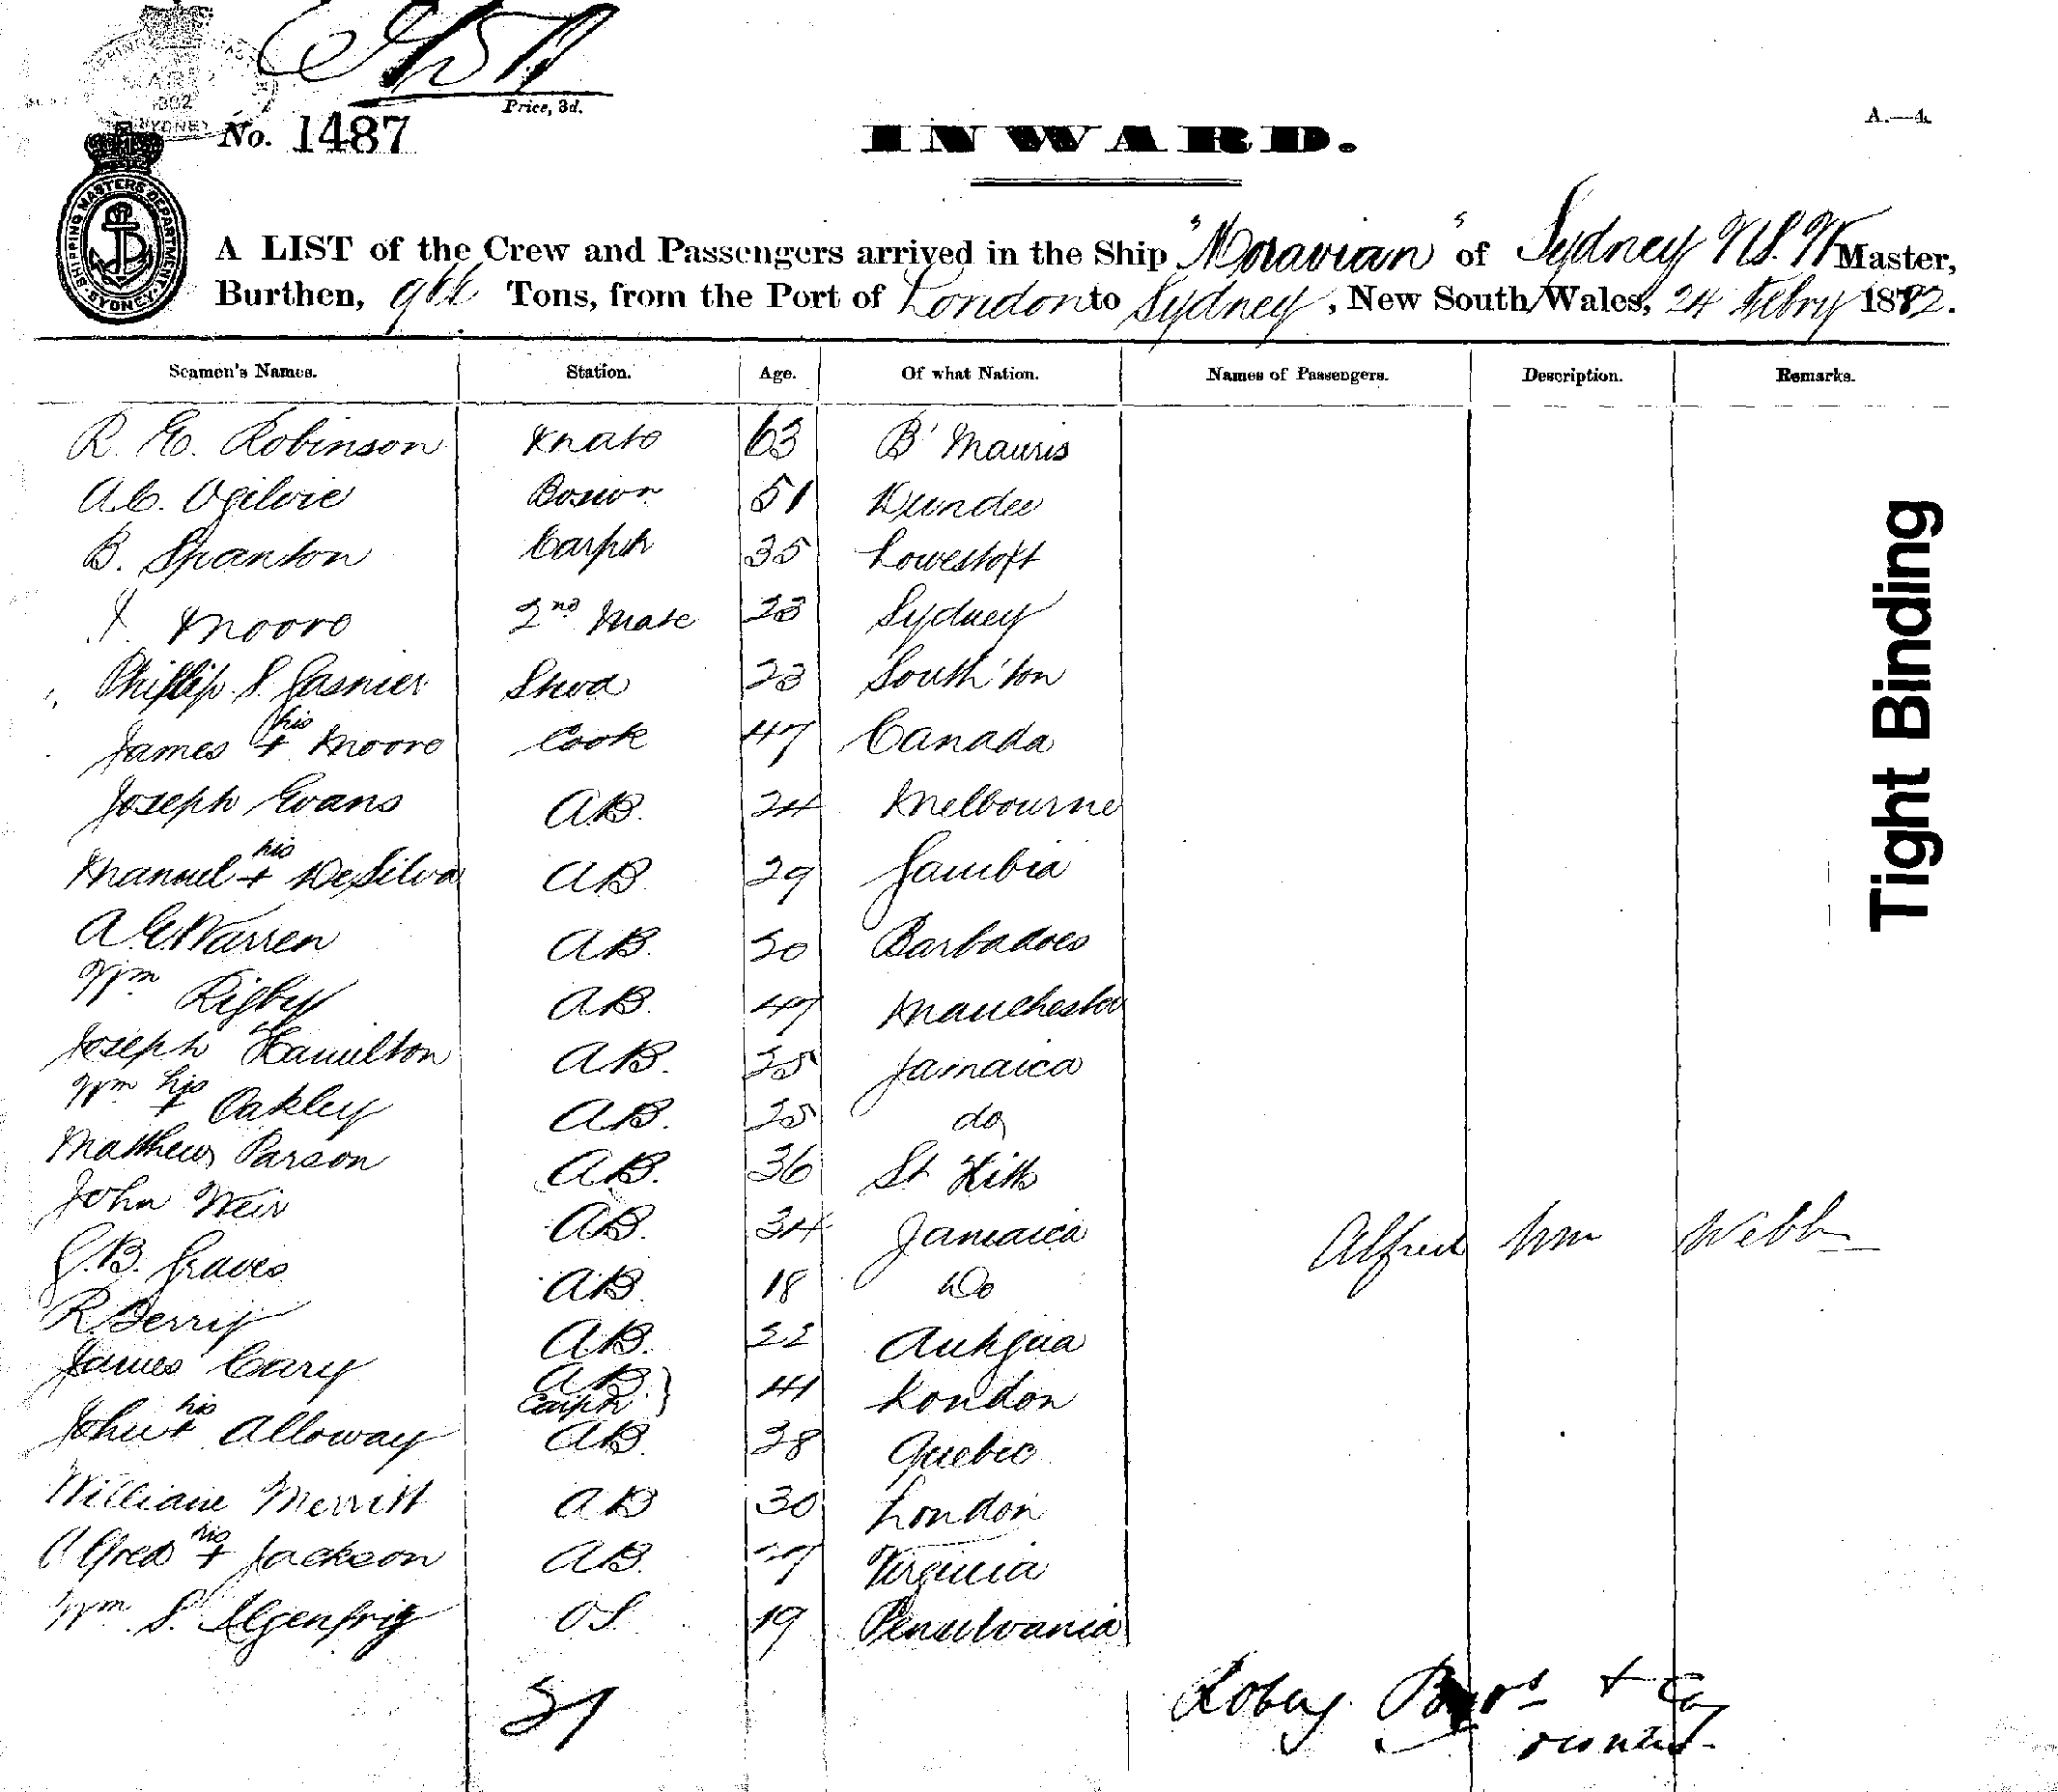 SYDNEY
Price, 3d.
No. 1487
INWARD.
A.—4.
SHIPPING MASTERS DEPARTMENT. SYDNEY.
A LIST of the Crew and Passengers arrived in the Ship "Moravian" of Sydney N.S.W Master,
Burthen, 966 Tons, from the Port of London to Sydney, New South Wales, 24 Febry 1882.
Seamen's Names. Station. Age. Of what Nation. Names of Passengers. Description. Remarks.
R. E. Robinson 63 B' Mauris
A.C. Ogilvie Boswn 51 Dundee
B. Spanton Carptr 35 Lowestoft
Moore 2nd Mate 23 Sydney
Phillip. S. Gasnier Stwd 23 South'ton
James his + Moore Cook 47 Canada
Joseph Evans AB. 24 Melbourne
Manuel his + De Silva AB. 29 Gambia
A. E. Warren AB. 50 Barbadoes
Wm Rigby AB. 47 Manchester
Joseph Hamilton AB. 25 Jamaica
Wm his + Oakley AB. 25 do
Matthew Parson AB. 36 St Kitts
John Weir AB. 34 Jamaica
G.B. Graves AB. 18 Do
R. Berry AB. 22 Antigua
James Cary AB. Carptr } 41 London
John his + Alloway AB. 38 Quebec
William Merritt AB 30 London
Alfred his + Jackson AB. 27 Virginia
Wm. S. Ilgenfrig OS. 19 Pensulvania
Alfred Wm Webb
21
Bros + Co
Tight Binding